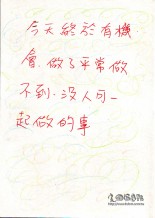 今天終於有機
會,做了平常做
不到,沒人可一
起做的事